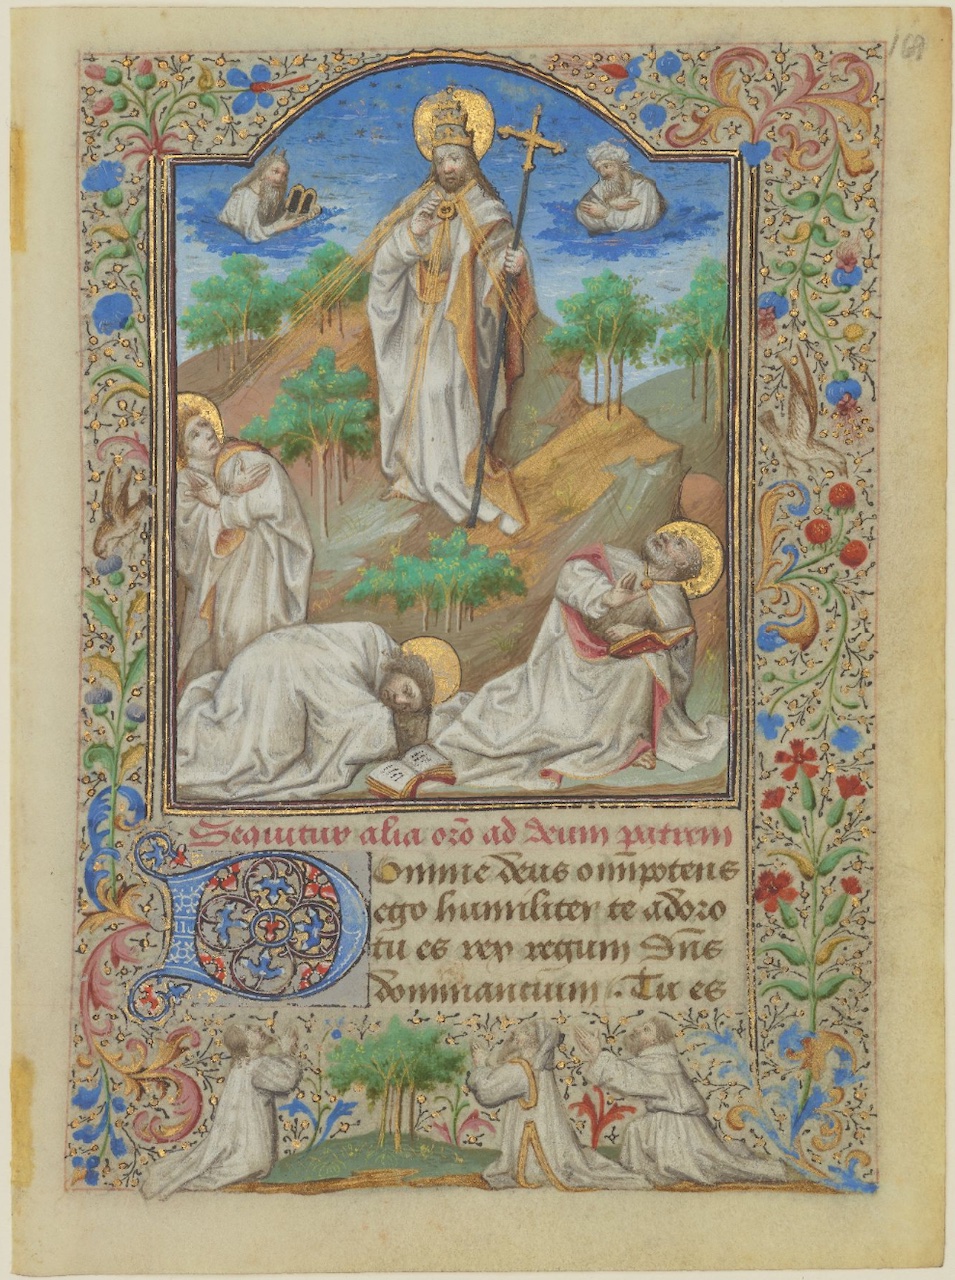 169
Sequitur alia orō ad deum patrem
Domine deus omīpotens
ego humiliter te adoro
tu es rex regum Dn̄s
dominantium . Tu es